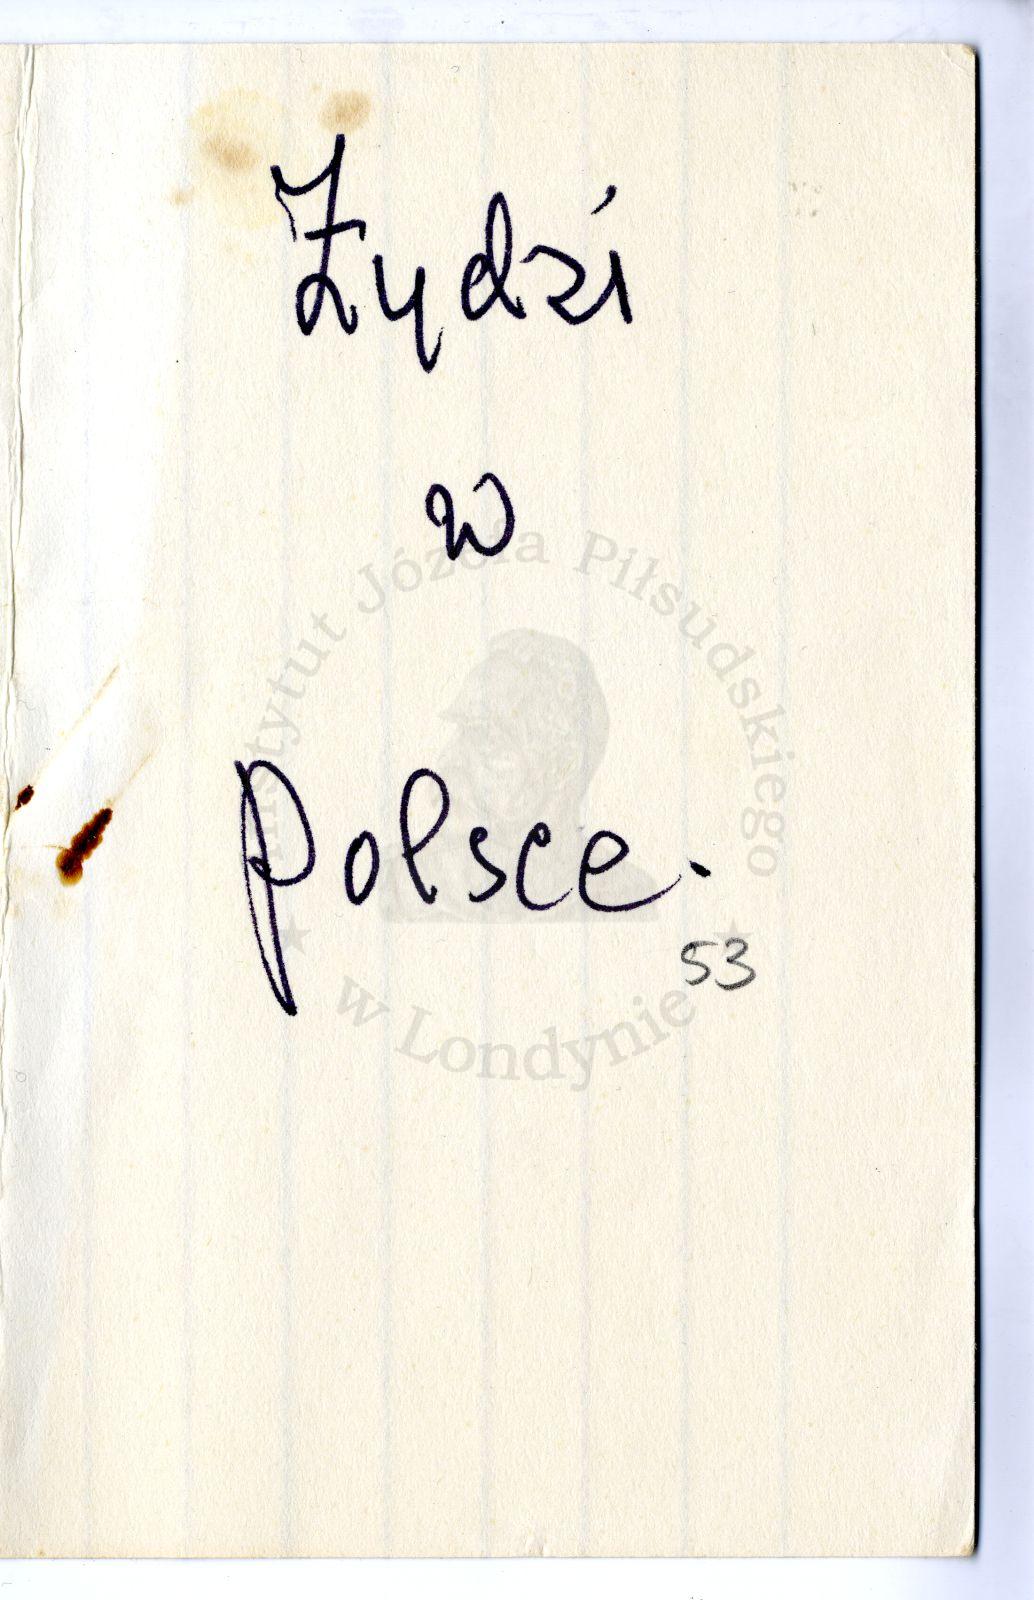 Żydzi
w
Polsce.
53
Instytut Józefa Piłsudskiego
w Londynie